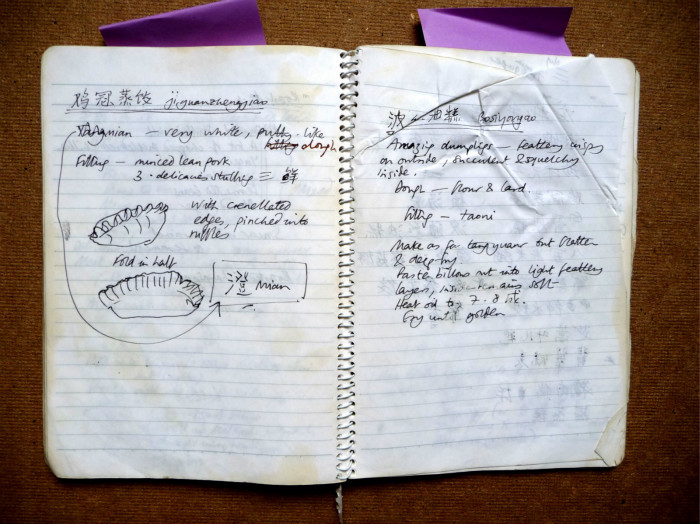 鸡冠蒸饺 jiguanzhengjiao
– very white, putty-like
dough
Filling – minced lean pork
3-delicacies stuffing 三鲜
With crenellated
edges, pinched into
ruffles
Fold in half
澄 mian
波丝油糕 bosiyougao
Amazing dumplings – feathery crispy
on outside, succulent & squelchy
inside.
Dough – flour & lard
Filling – taoni
Make as for tangyuan but flatten
& deep-fry
Paste billows out into light feathery
layers, inside remains soft
Heat oil to 7-8
Fry until golden